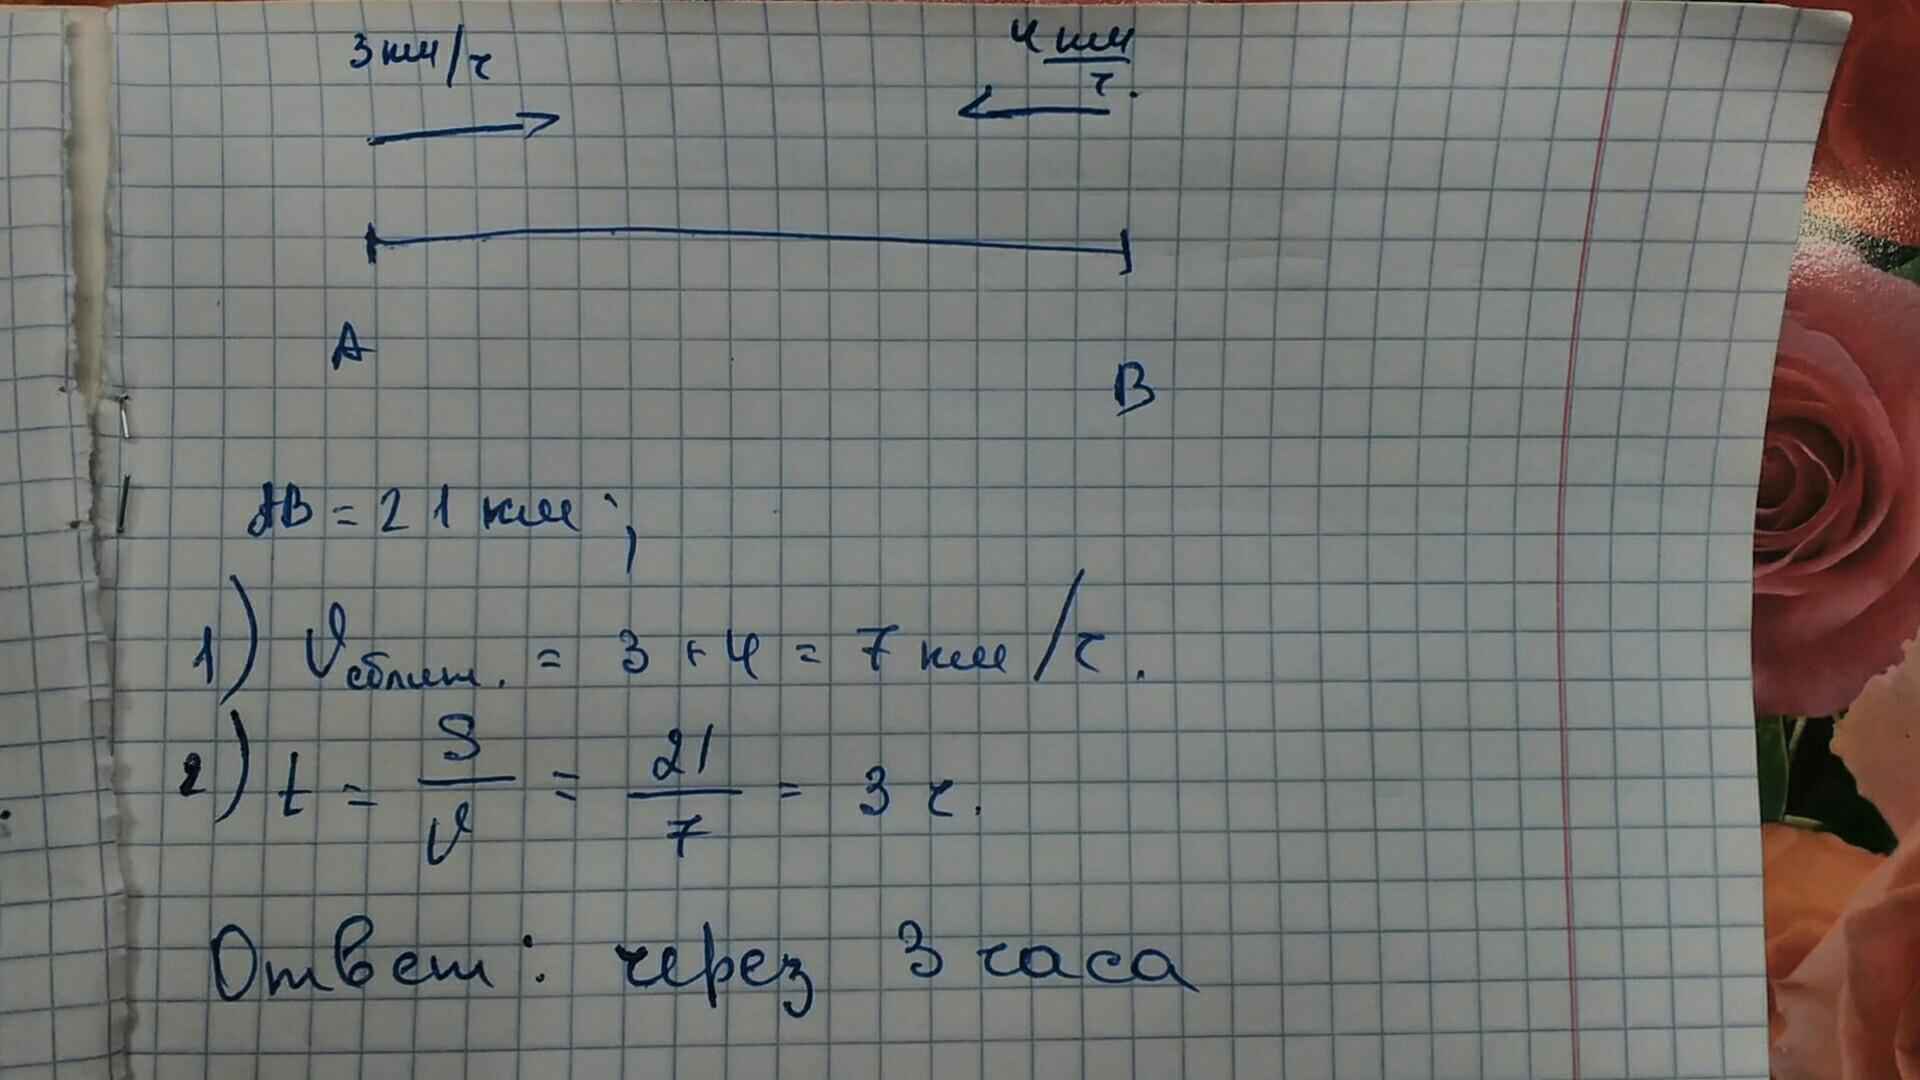 3 км/ч
4 км/ч.
A
B
AB = 21 км;
1) V сближ. = 3 + 4 = 7 км/ч.
2) t = S/V = 21/7 = 3 ч.
Ответ: через 3 часа